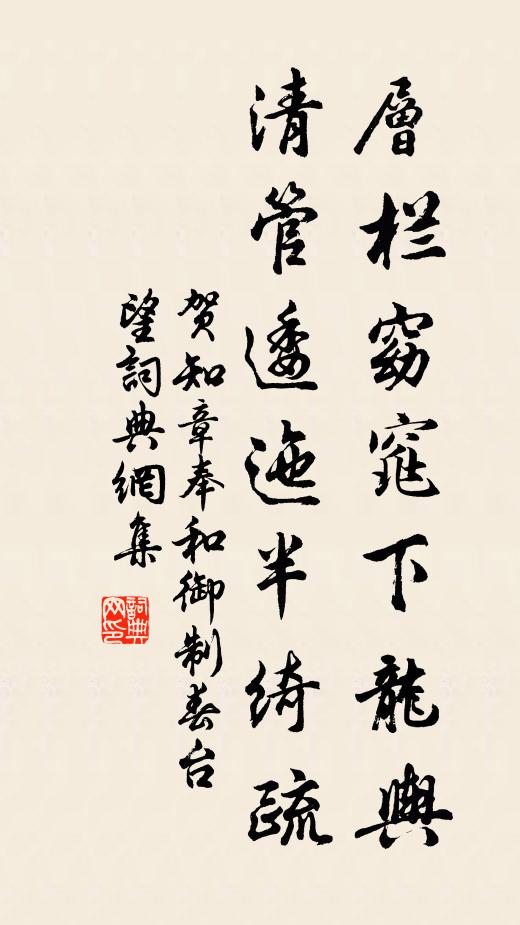 層栏窈窕下龍輿
清管逶迤半綺疏
贺知章奉和御制春台
望詞典網集
詞典
网印